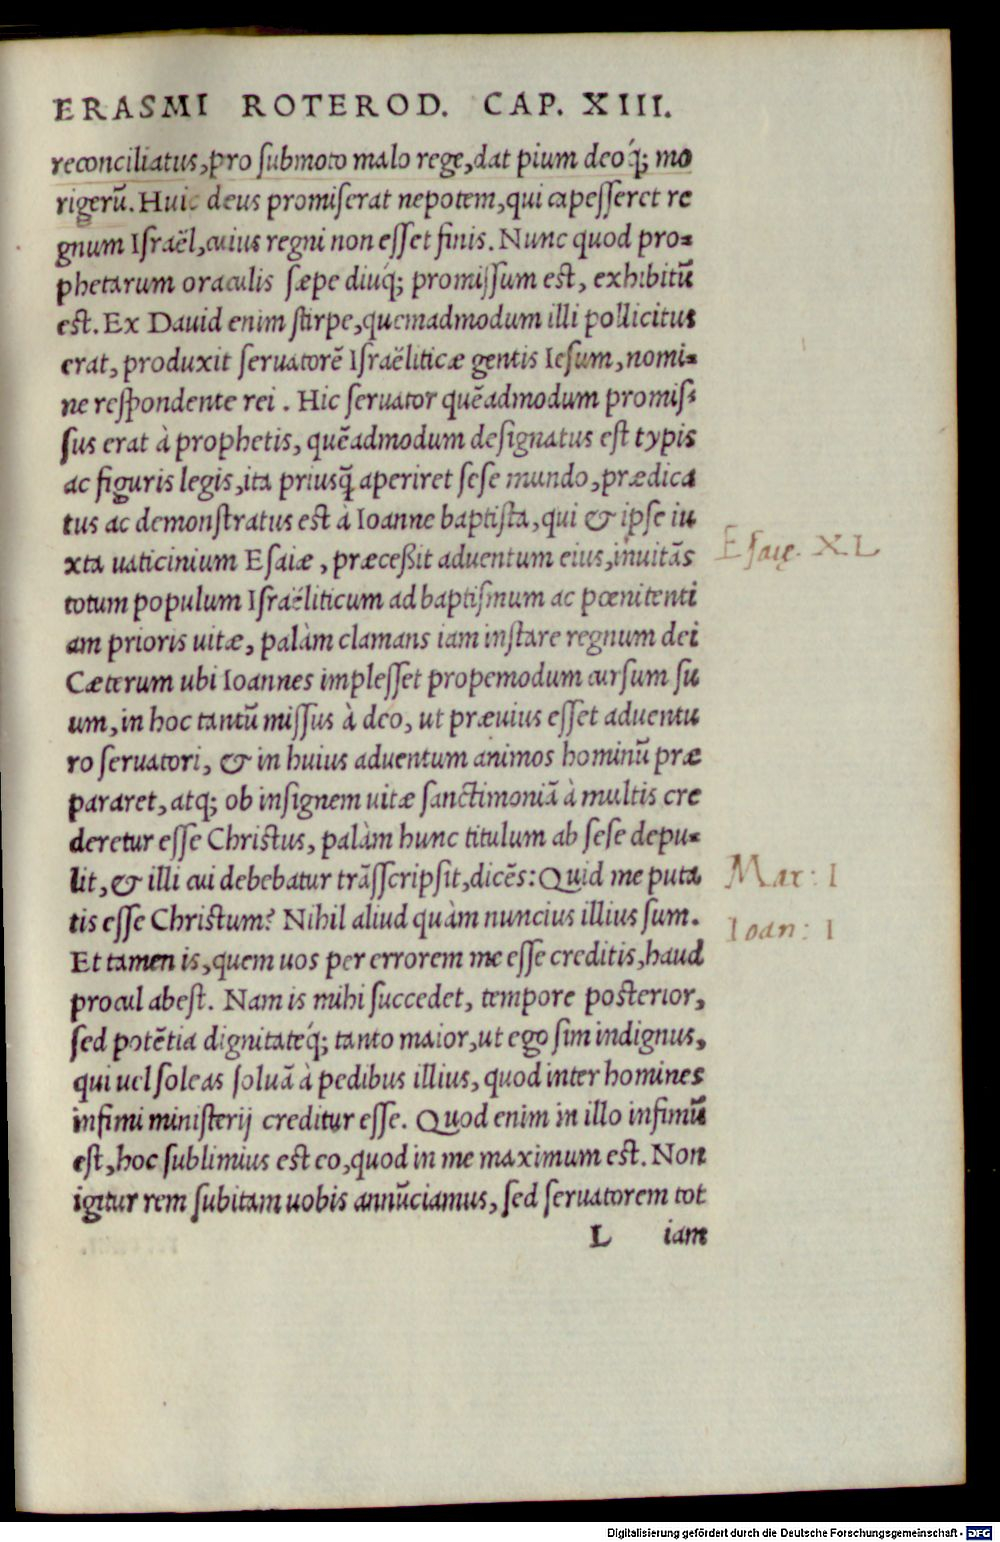 ERASMI ROTEROD. CAP. XIII.
reconciliatus, pro ſubmoto malo rege, dat pium deoq́; mo
rigerū. Huic deus promiſerat nepotem, qui capeſſeret re
gnum Iſraël, cuius regni non eſſet finis. Nunc quod pro-
phetarum oraculis ſæpe diuq́; promiſſum eſt, exhibitū
eſt. Ex Dauid enim ſtirpe, quemadmodum illi pollicitus
erat, produxit ſeruatorē Iſraëliticæ gentis Ieſum, nomi-
ne reſpondente rei. Hic ſeruator quēadmodum promiſ-
ſus erat à prophetis, quēadmodum deſignatus eſt typis
ac figuris legis, ita priusq̃ aperiret ſeſe mundo, prædica
tus ac demonſtratus eſt à Ioanne baptiſta, qui & ipſe iu
xta uaticinium Eſaiæ, præceßit aduentum eius, inuitãs
totum populum Iſraëliticum ad baptiſmum ac pœnitenti
am prioris uitæ, palàm clamans iam inſtare regnum dei
Cæterum ubi Ioannes impleſſet propemodum curſum ſu
um, in hoc tantū miſſus à deo, ut præuius eſſet aduentu
ro ſeruatori, & in huius aduentum animos hominū præ
pararet, atq; ob inſignem uitæ ſanctimoniã à multis cre
deretur eſſe Chriſtus, palàm hunc titulum ab ſeſe depu-
lit, & illi cui debebatur trãſſcripſit, dicēs: Quid me puta
tis eſſe Chriſtum? Nihil aliud quàm nuncius illius ſum.
Et tamen is, quem uos per errorem me eſſe creditis, haud
procul abeſt. Nam is mihi ſuccedet, tempore poſterior,
ſed potētia dignitateq́; tanto maior, ut ego ſim indignus,
qui uel ſoleas ſoluã à pedibus illius, quod inter homines
infimi miniſterij creditur eſſe. Quod enim in illo infimū
eſt, hoc ſublimius eſt eo, quod in me maximum eſt. Non
igitur rem ſubitam uobis annūciamus, ſed ſeruatorem tot
L iam
Eſaię. XL
Mar: 1
Ioan: 1
Digitalisierung gefördert durch die Deutsche Forschungsgemeinschaft - DFG